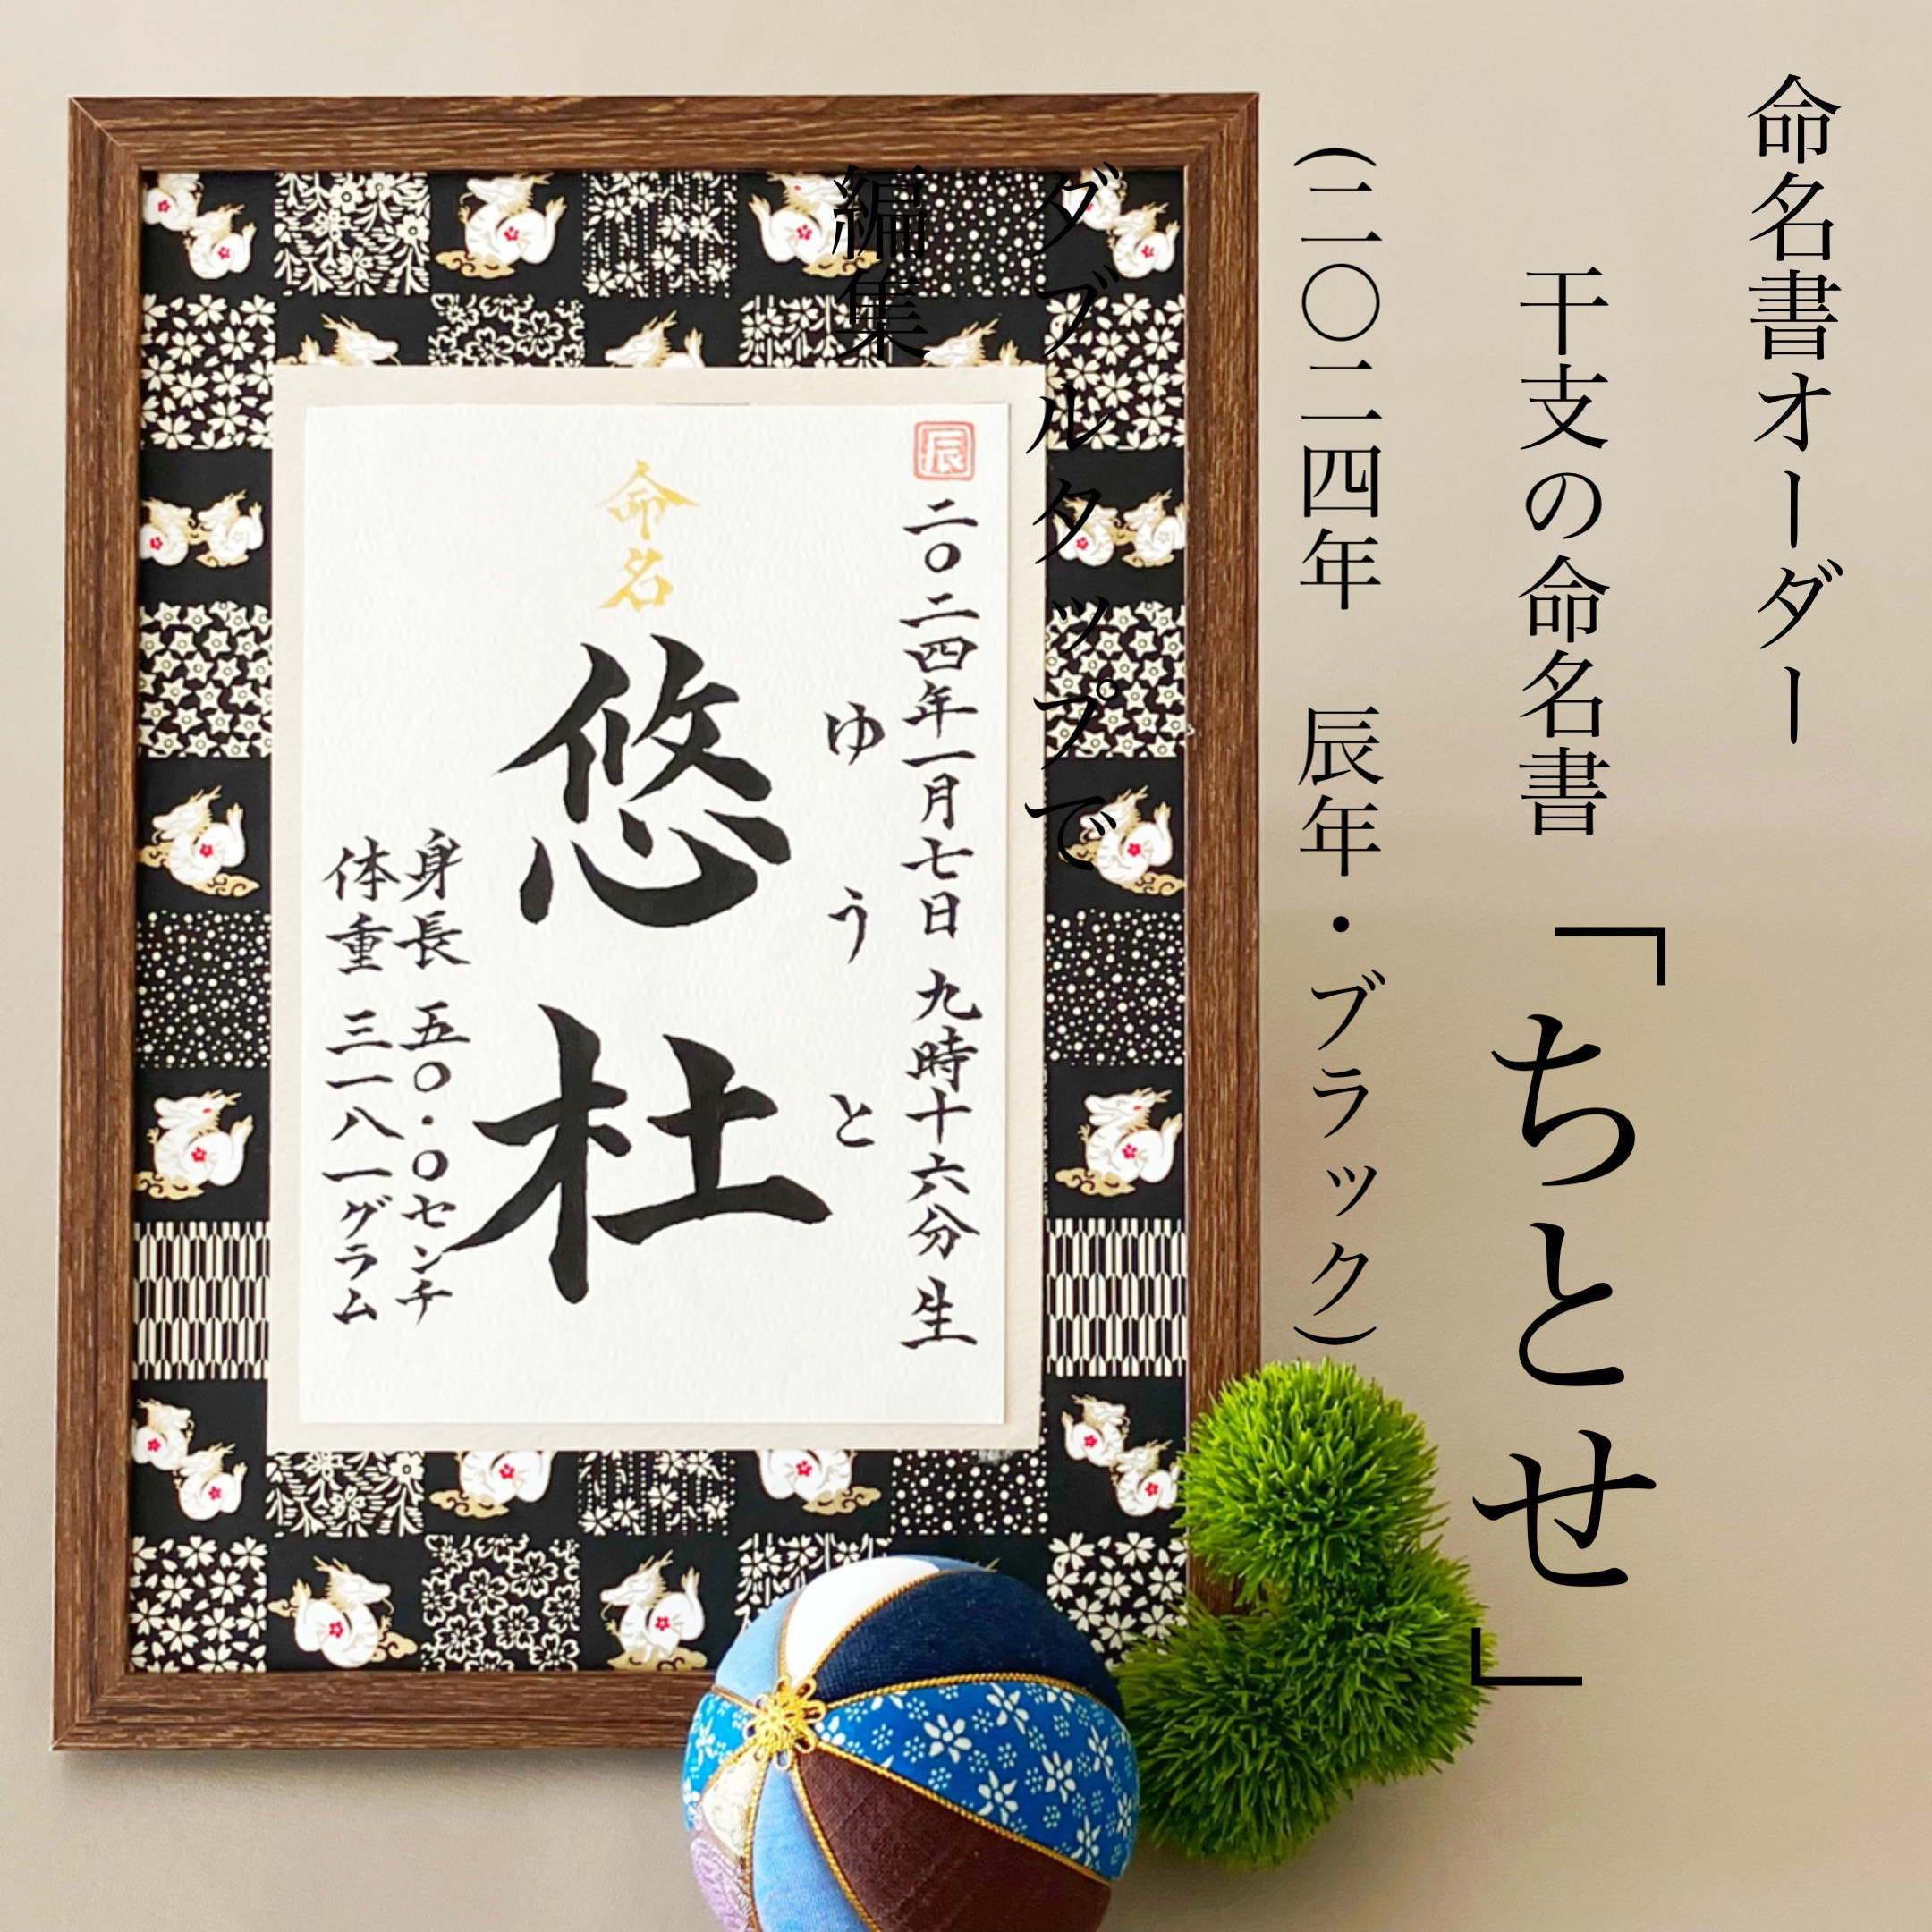 命名書オーダー
干支の命名書「ちとせ」
(二〇二四年 辰年・ブラック)
ダブルタップで
編集
辰
二〇二四年一月七日 九時十六分 生
ゆうと
命名
悠杜
身長 五〇.〇センチ
体重 三一八一グラム